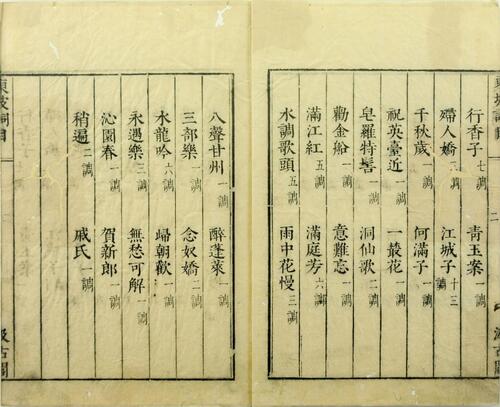 行香子 七調 青玉案 一調
殢人嬌 三調 江城子 十三調
千秋歲 一調 何滿子 一調
祝英臺近 一調 一叢花 一調
皂羅特髻 一調 洞仙歌 二調
勸金船 一調 意難忘 一調
滿江紅 五調 滿庭芳 六調
水調歌頭 五調 雨中花慢 三調
八聲甘州 一調 醉蓬萊 一調
三部樂 一調 念奴嬌 二調
水龍吟 六調 歸朝歡 一調
永遇樂 三調 無愁可解 一調
沁園春 一調 賀新郎 一調
稍遍 二調 戚氏 一調
東坡詞目
汲古閣